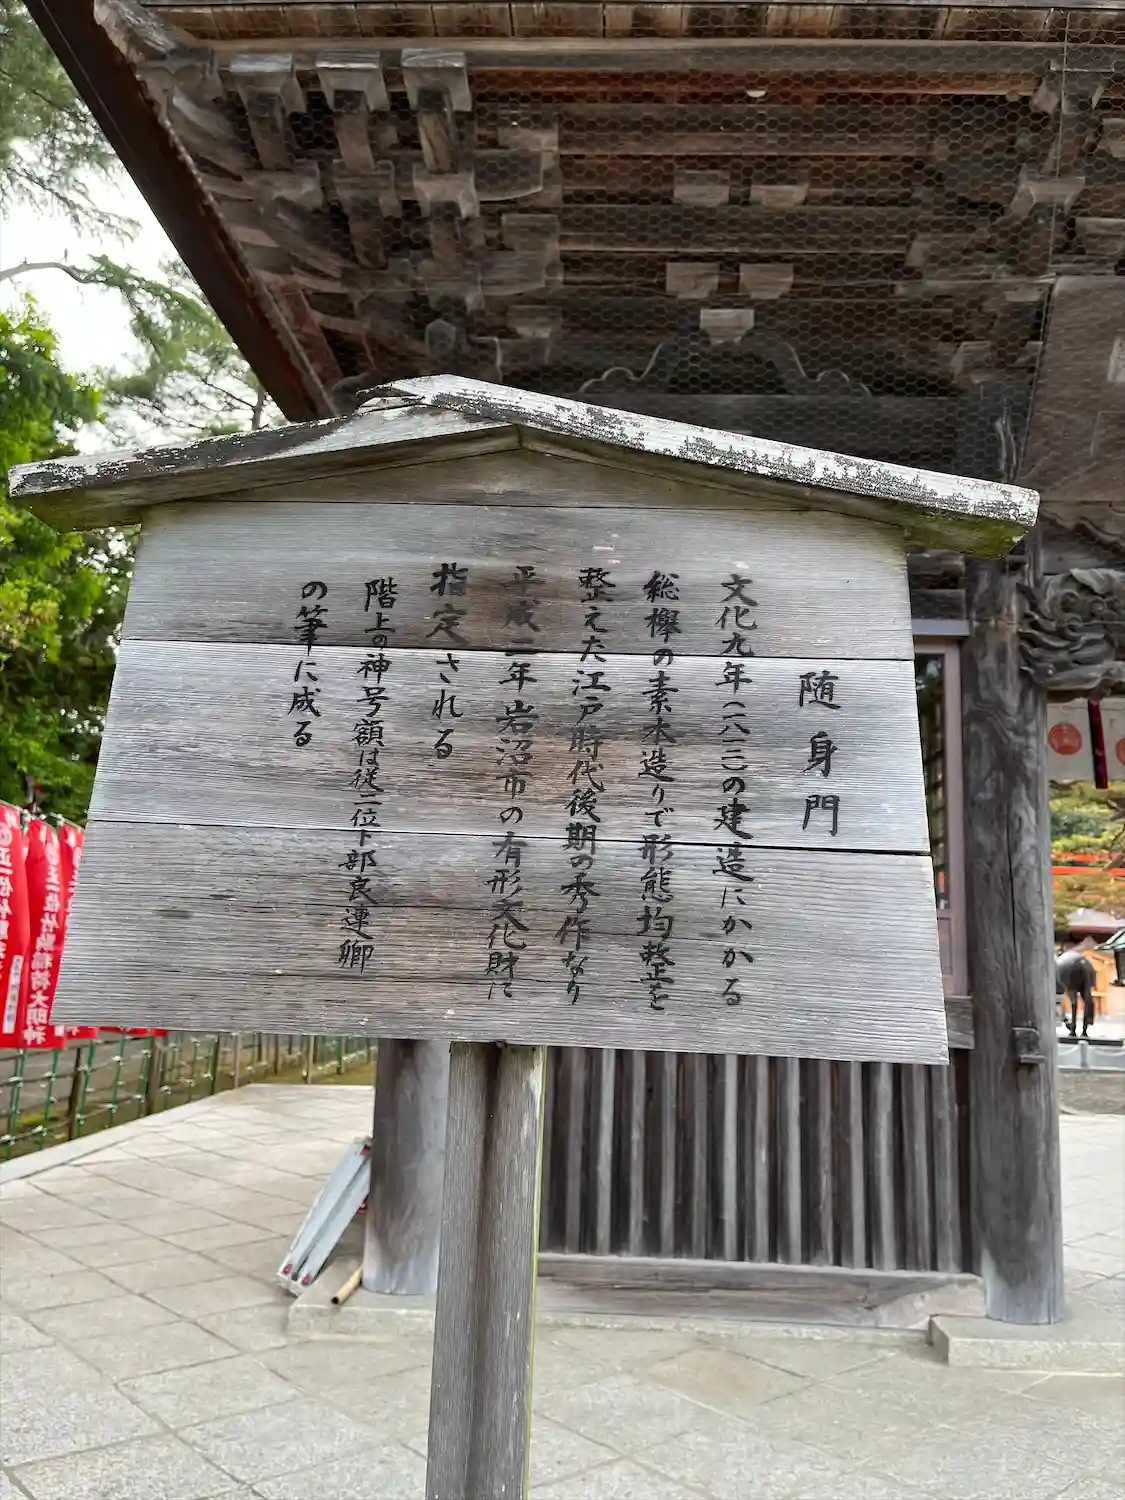 随身門
文化九年(一八一二)の建造にかかる
総欅の素木造りで形態均整を
整えた江戸時代後期の秀作なり
平成二年岩沼市の有形文化財に
指定される
階上の神号額は従二位卜部良連卿
の筆に成る
正一位竹駒稲荷大明神